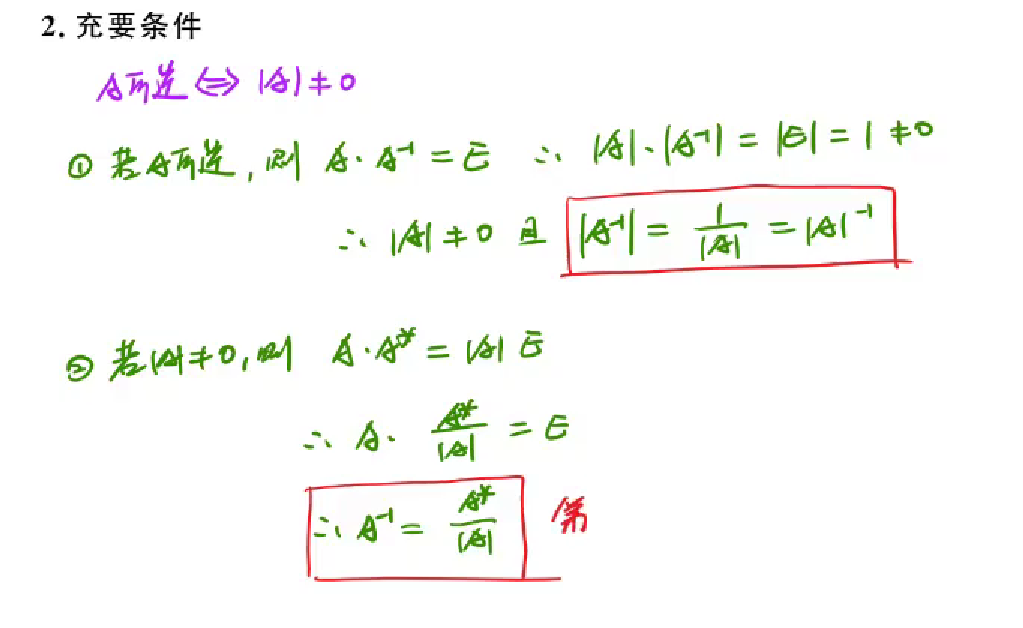 2. 充要条件
A可逆 ⇔ |A| ≠ 0
① 若A可逆, 则 A·A⁻¹ = E ∴ |A|·|A⁻¹| = |E| = 1 ≠ 0
∴ |A| ≠ 0 且 |A⁻¹| = 1/|A| = |A|⁻¹
② 若|A| ≠ 0, 则 A·A* = |A| E
∴ A· A*/|A| = E
∴ A⁻¹ = A*/|A| 第